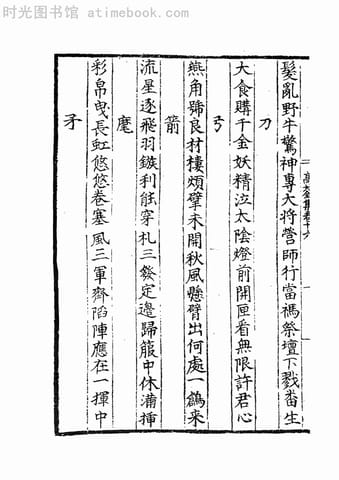 时光图书馆 atimebook.com
集卷十六
髮亂野牛驚神專大将營師行當禡祭壇下戮畨生
刀
大食購千金妖精泣太陰燈前開匣看無限許君心
弓
燕角號良材樓煩擘未開秋風懸臂出何處一鵰来
箭
流星逐飛羽鏃利能穿札三發定邊歸箙中休滿揷
麾
彩帛曳長虹悠悠卷塞風三軍齊陷陣應在一揮中
矛